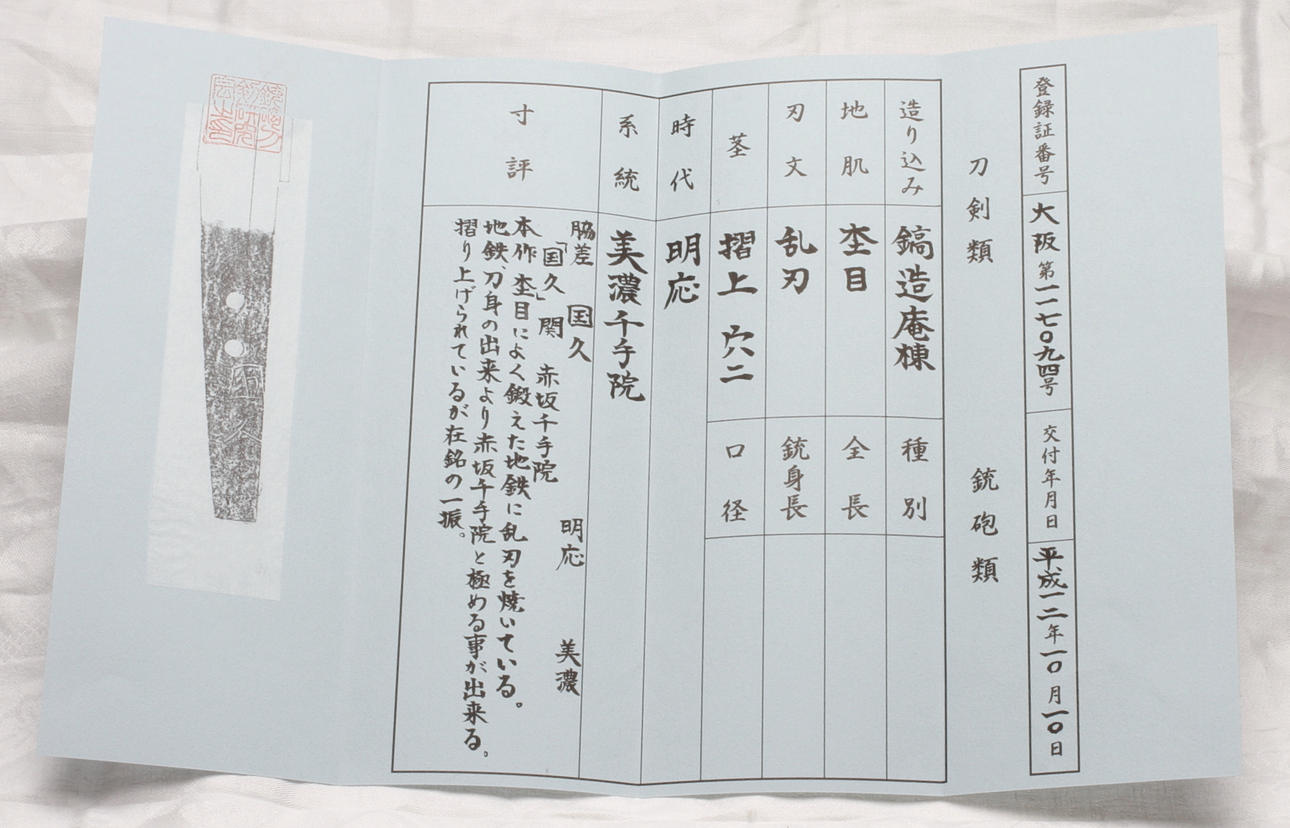 登録証番号 大阪 第一一七〇九四号 交付年月日 平成一二年一〇月一〇日
刀剣類 銃砲類
造り込み 鎬造庵棟 種別
地肌 杢目 全長
刃文 乱刃 銃身長
茎 摺上 穴二 口径
時代 明応
系統 美濃千手院
寸評 脇差 国久 明応 美濃
「国久」 関 赤坂千手院
本作、杢目によく鍛えた地鉄に乱刃を焼いている。
地鉄、刀身の出来より赤坂千手院と極める事が出来る。
摺り上げられているが在銘の一振。
国久